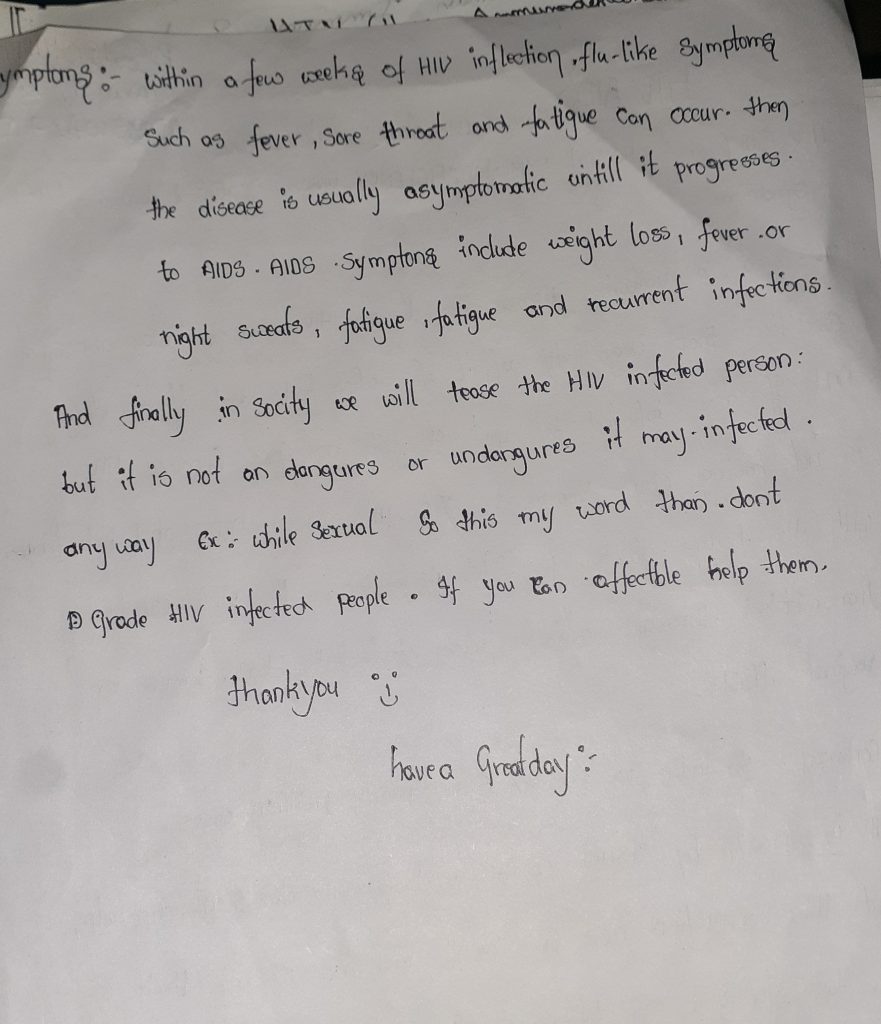 ymptoms :- within a few weeks of HIV inflection, flu-like symptoms
such as fever, sore throat and fatigue can occur. then
the disease is usually asymptomatic untill it progresses.
to AIDS. AIDS . Symptons include weight loss, fever .or
night sweats, fatigue , fatigue and recurrent infections.
And finally in socity we will tease the HIV infected person:
but it is not an dangures or undangures it may-infected.
any way Ex :- while sexual So this my word than . dont
grade HIV infected people . If you can affectble help them.
thankyou :)
have a Great day :-